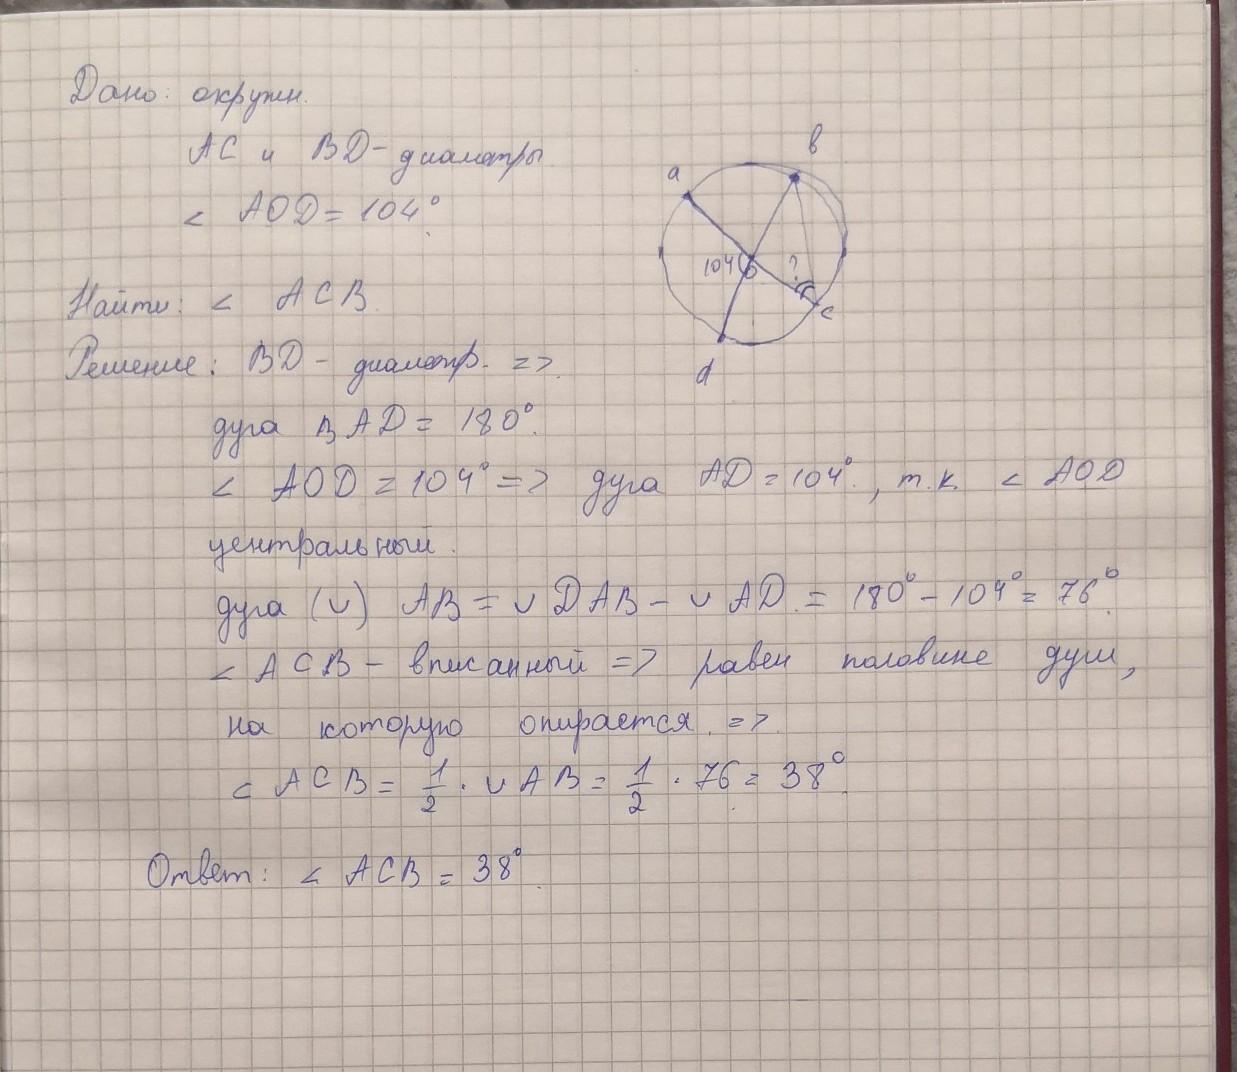 Дано: окружн.
AC и BD - диаметры
< AOD = 104°
a
b
104
?
c
d
Найти: < ACB
Решение: BD - диаметр. =>
дуга BAD = 180°.
< AOD = 104° => дуга AD = 104°., т.к. < AOD
центральный.
дуга (∪) AB = ∪ DAB - ∪ AD = 180° - 104° = 76°.
< ACB - вписанный => равен половине дуги,
на которую опирается =>
< ACB = 1/2 · ∪ AB = 1/2 · 76 = 38°.
Ответ: < ACB = 38°.